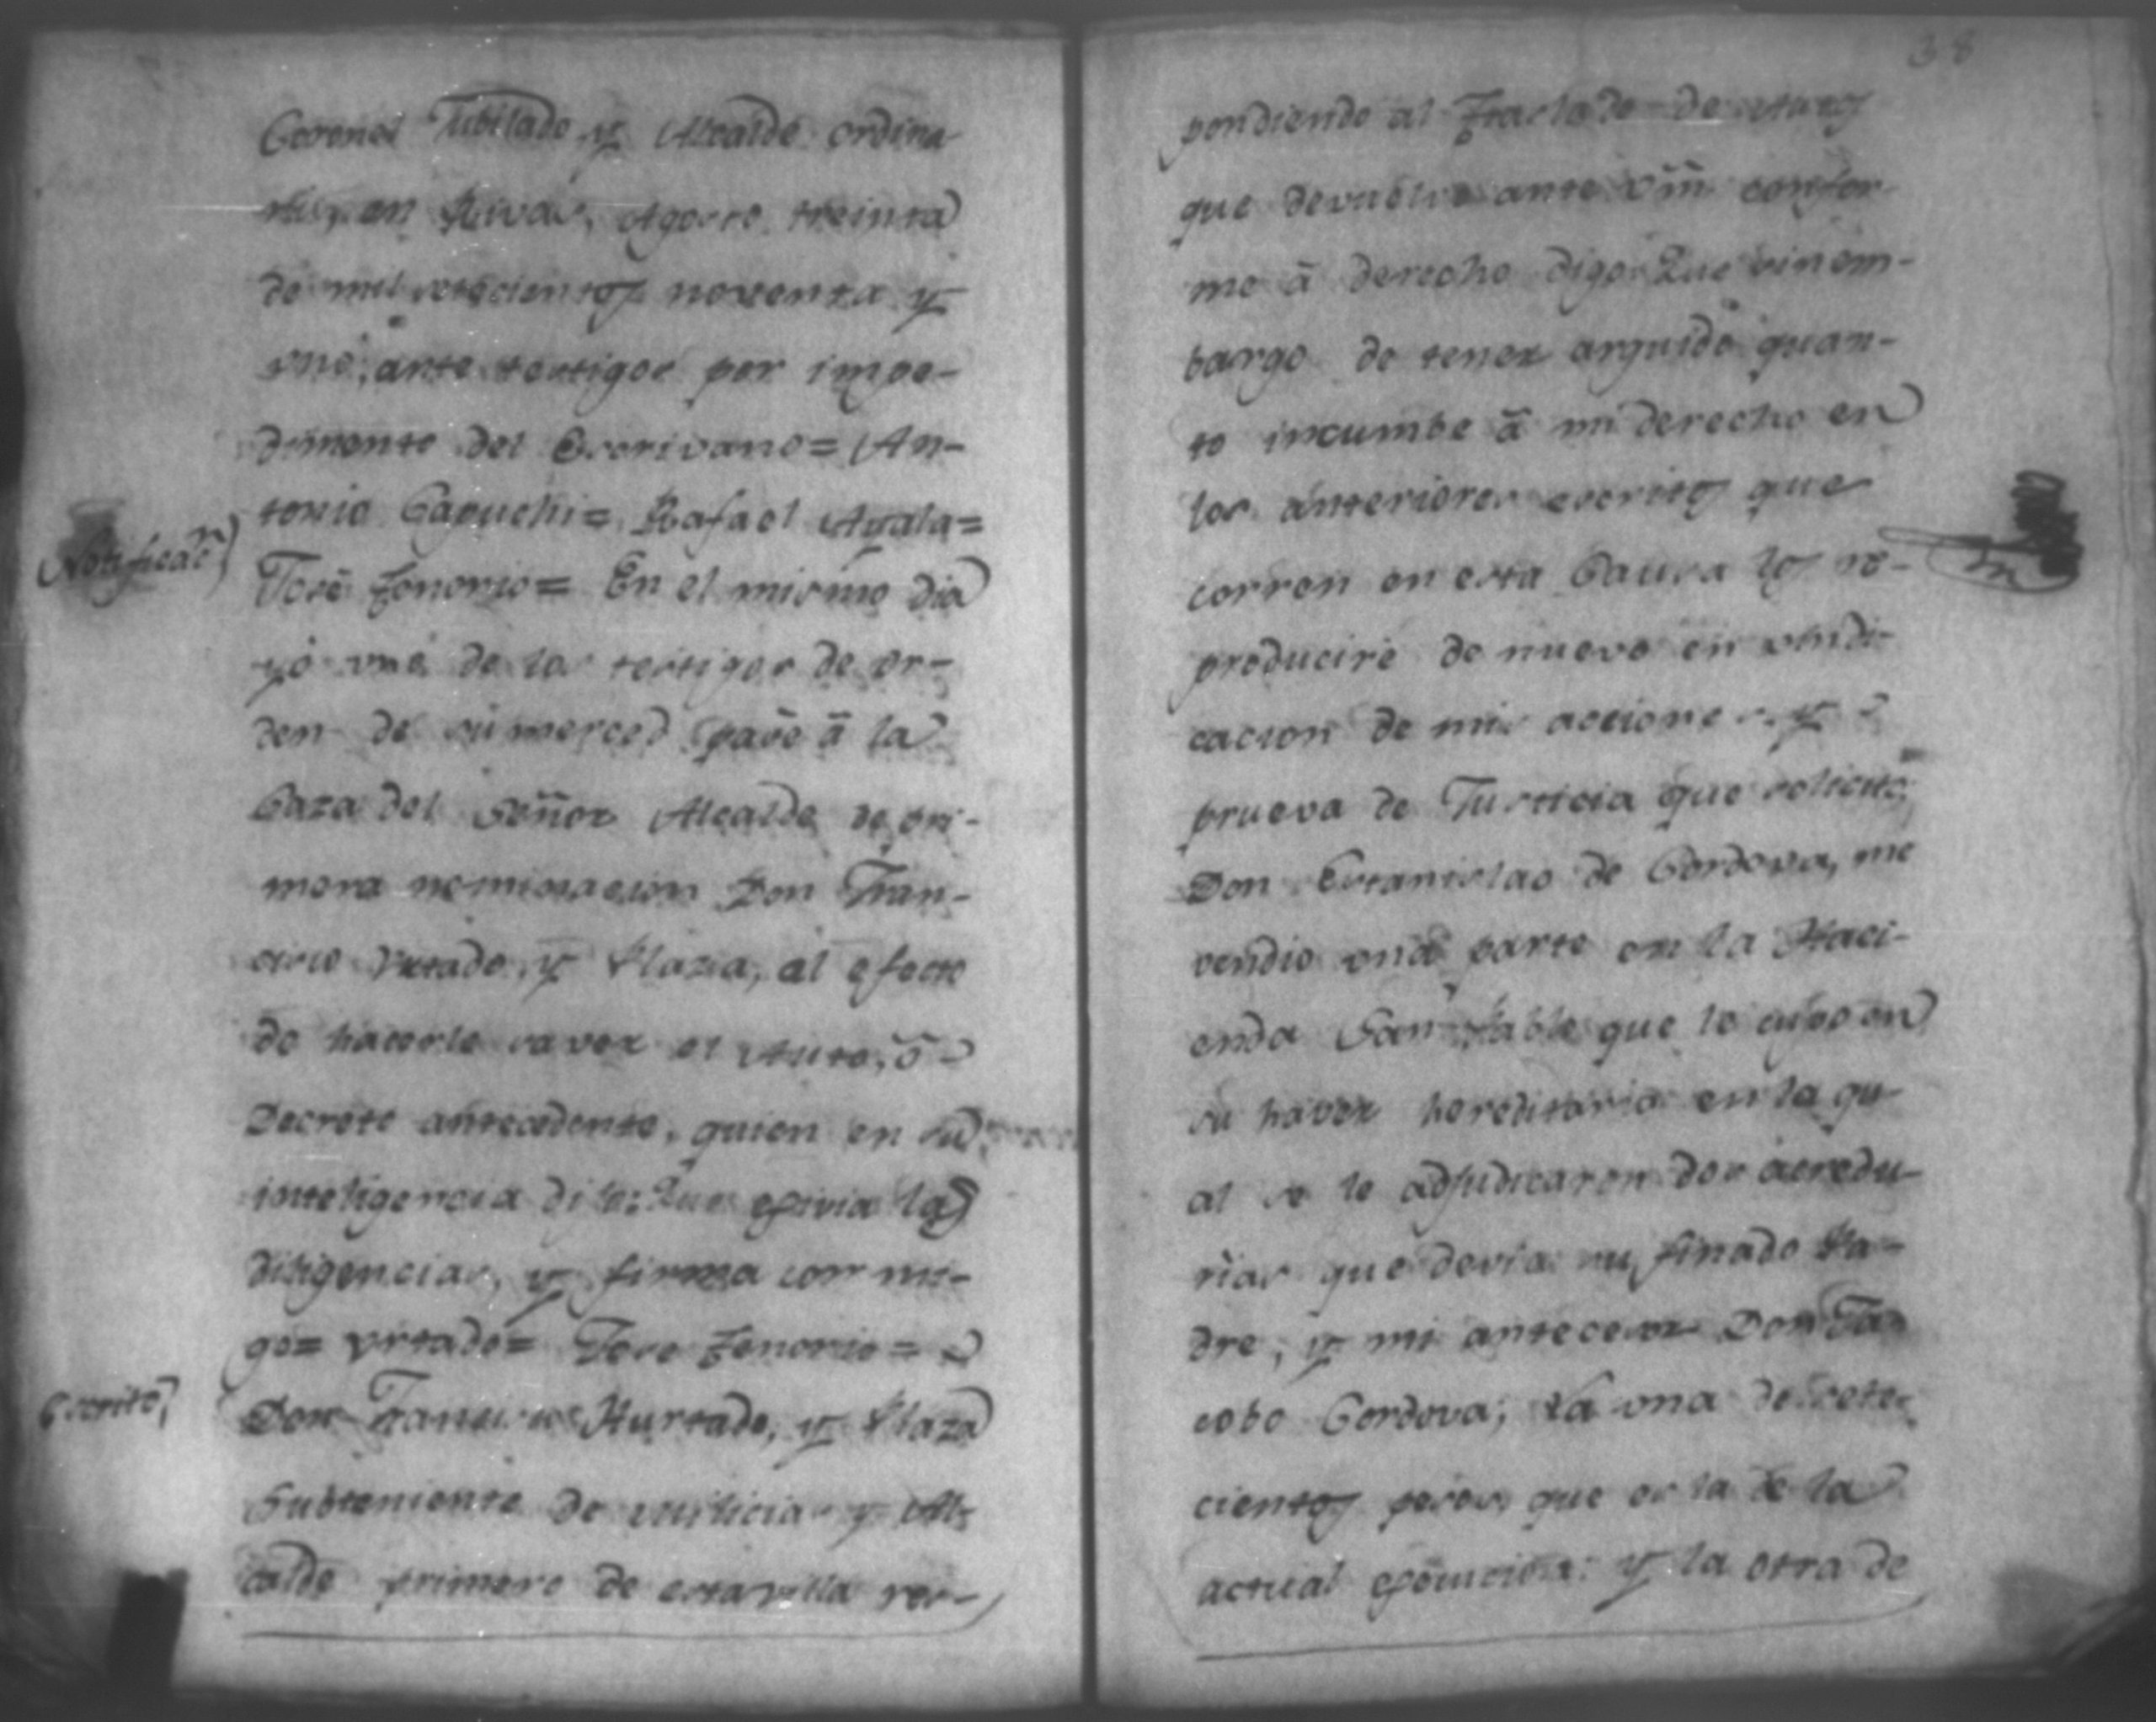 Coronel Jubilado y Alcalde ordina-
rio, en Rivas, Agosto treinta
de mil setecientos noventa y
uno, ante testigos por impe-
dimento del Escrivano= An-
tonio Capuchi= Rafael Ayala=
Notificac.n)
José Tenorio= En el mismo dia
yó uno de los testigos de or-
den de su merced pasé á la
Caza del Señor Alcalde de pri-
mera nominacion Don Fran-
cisco Vrtado, y Plaza, al efecto
de hacerle saver el Auto, ó
Decreto antecedente, quien en su
inteligencia dijo: Que exivia las
diligencias, y firma con mi-
go= Vrtado= Jose Tenorio=
Escrito,
Don Francisco Hurtado, y Plaza
Subteniente de milicias y Al-
calde primero de esta villa res-
38
pondiendo al traslado de Autos
que devuelvo ante Vm̃ confor-
me á derecho digo: Que sin em-
bargo de tener arguido quan-
to incumbe á mi derecho en
los anteriores escritos que
corren en esta Causa los re-
produciré de nuevo en vindi-
cacion de mis acciones y
prueva de Justicia que solicito,
Don Estanislao de Cordova, me
vendio una parte en la Haci-
enda San Pablo que le cupo en
su haver hereditario en la qu-
al se le adjudicaron dos acredu-
rias que devia su finado Pa-
dre, y mi antecesor Don Ja-
cobo Cordova, la una de sete-
cientos pesos, que es la de la
actual execucion: y la otra de